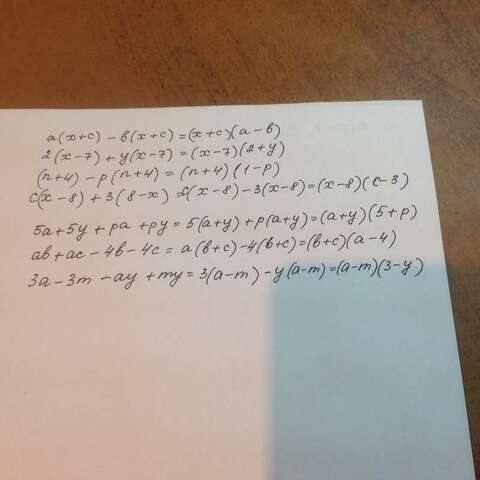 a(x+c) - b(x+c) = (x+c)(a-b)
2(x-7) + y(x-7) = (x-7)(2+y)
(n+4) - p(n+4) = (n+4)(1-p)
c(x-8) + 3(8-x) = c(x-8) - 3(x-8) = (x-8)(c-3)
5a+5y + pa + py = 5(a+y) + p(a+y) = (a+y)(5+p)
ab + ac - 4b - 4c = a(b+c) - 4(b+c) = (b+c)(a-4)
3a - 3m - ay + my = 3(a-m) - y(a-m) = (a-m)(3-y)